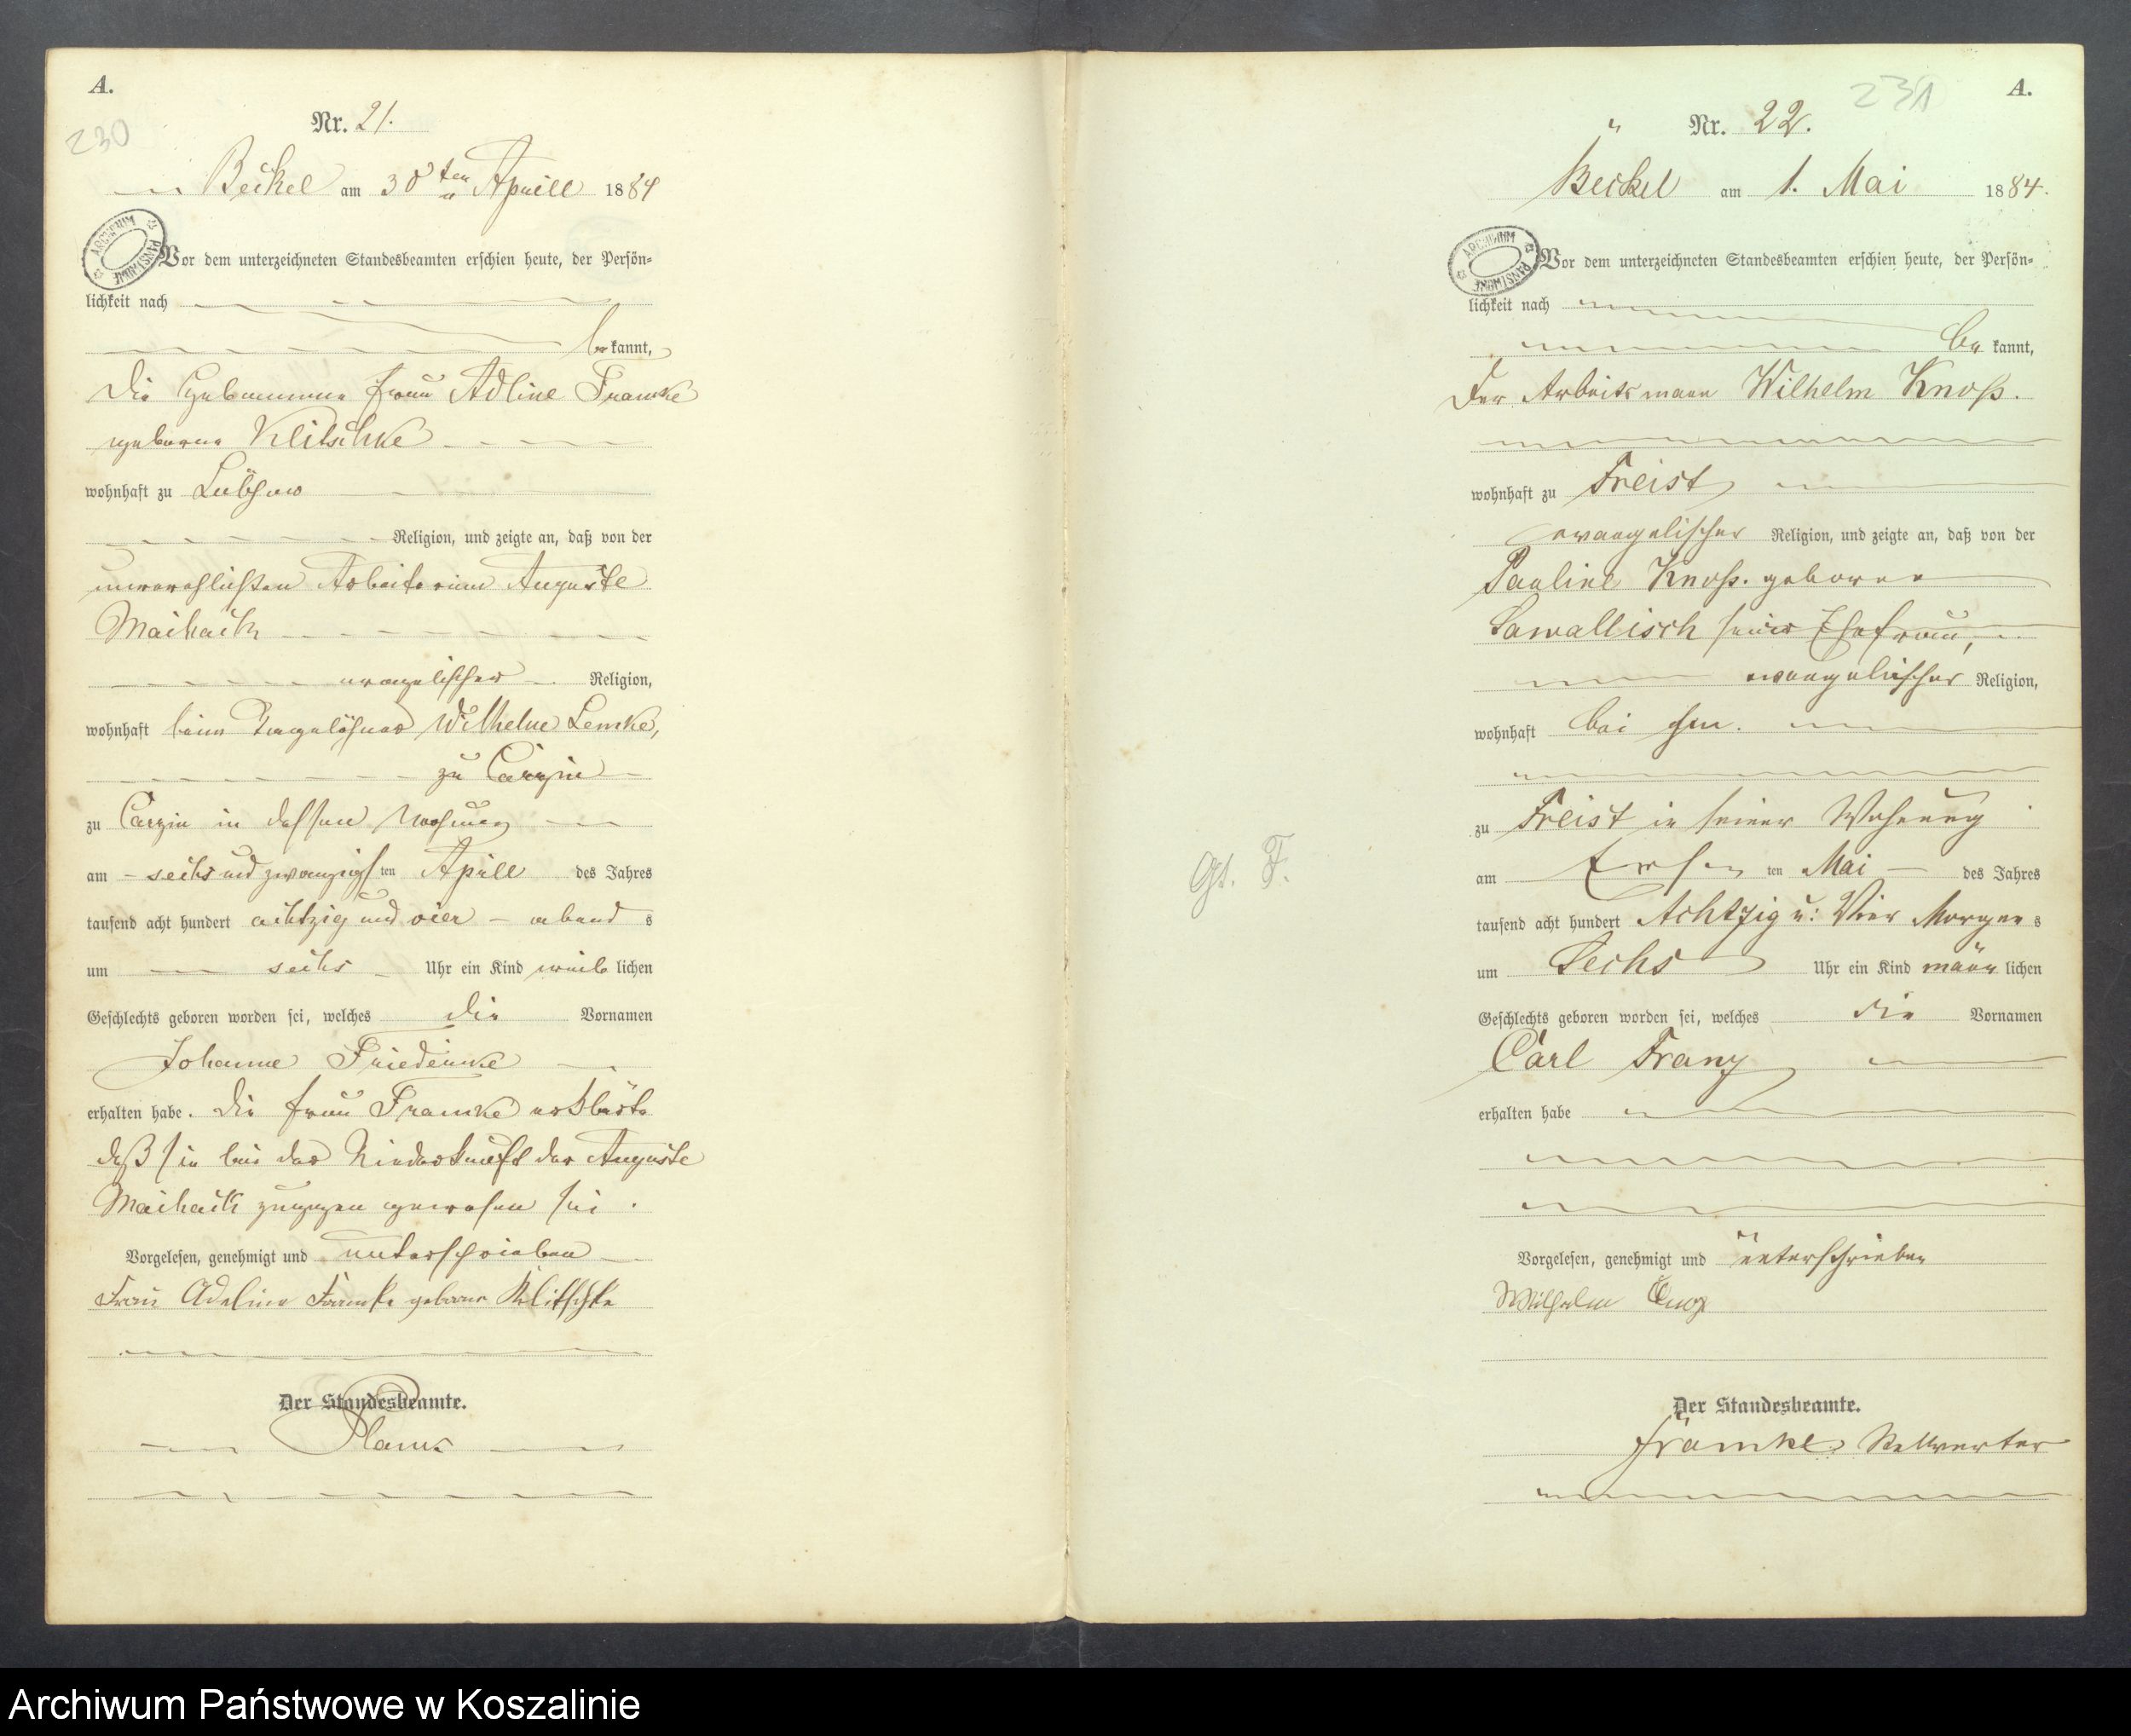 A.
230
Nr. 21.
Beckel am 30ten Aprill 1884
ARCHIWUM PAŃSTWOWE
Vor dem unterzeichneten Standesbeamten erschien heute, der Persön-
lichkeit nach
bekannt,
die Hebamme Frau Adline Framke
geborne Klitschke
wohnhaft zu Lübzow
Religion, und zeigte an, daß von der
unverehlichten Arbeiterinn Auguste
Maihack
evangelischer Religion,
wohnhaft beim Tagelöhner Wilhelm Lemke,
zu Carzin
zu Carzin in dessen Wohnung
am sechs und zwanzigsten Aprill des Jahres
tausend acht hundert achtzig und vier abends
um sechs Uhr ein Kind weiblichen
Geschlechts geboren worden sei, welches die Vornamen
Johanne Friederike
erhalten habe. Die Frau Framke erklärte
daß sie bei der Niederkunft der Auguste
Maihack zugegen gewesen sei.
Vorgelesen, genehmigt und unterschrieben
Frau Adeline Framke geborne Klitschke
Der Standesbeamte.
A.
231
Nr. 22.
Beckel am 1. Mai 1884.
ARCHIWUM PAŃSTWOWE
Vor dem unterzeichneten Standesbeamten erschien heute, der Persön-
lichkeit nach
bekannt,
der Arbeitsmann Wilhelm Knoß.
wohnhaft zu Freist
evangelischer Religion, und zeigte an, daß von der
Pauline Knoß. geborne
Sawallisch seiner Ehefrau,
evangelischer Religion,
wohnhaft bei ihm.
zu Freist in seiner Wohnung
am Ersten Mai des Jahres
tausend acht hundert Achtzig u: Vier Morgens
um Sechs Uhr ein Kind männlichen
Geschlechts geboren worden sei, welches die Vornamen
Carl Franz
erhalten habe
Vorgelesen, genehmigt und unterschrieben
Wilhelm Knoß
Der Standesbeamte.
Framke Stellverter
Gt. F.
Archiwum Państwowe w Koszalinie